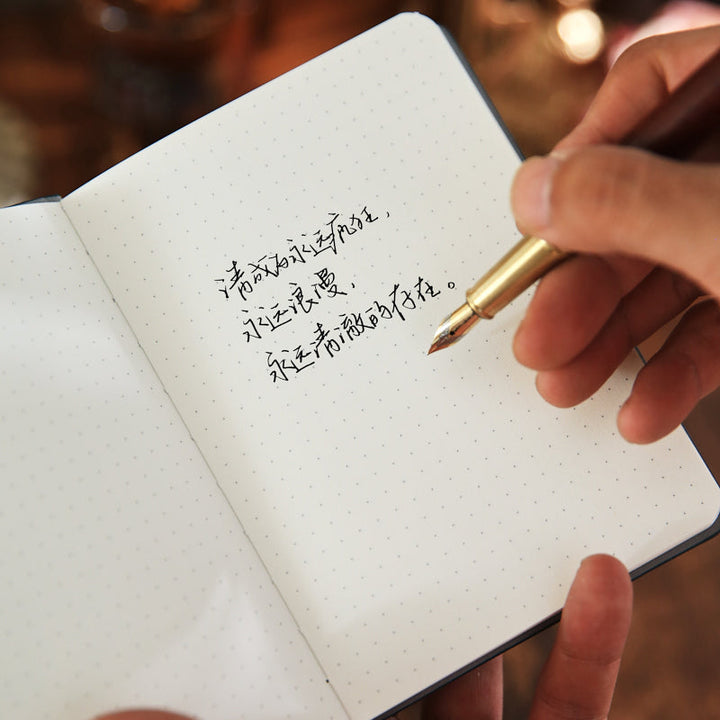 请成为永远疯狂,
永远浪漫,
永远清澈的存在。